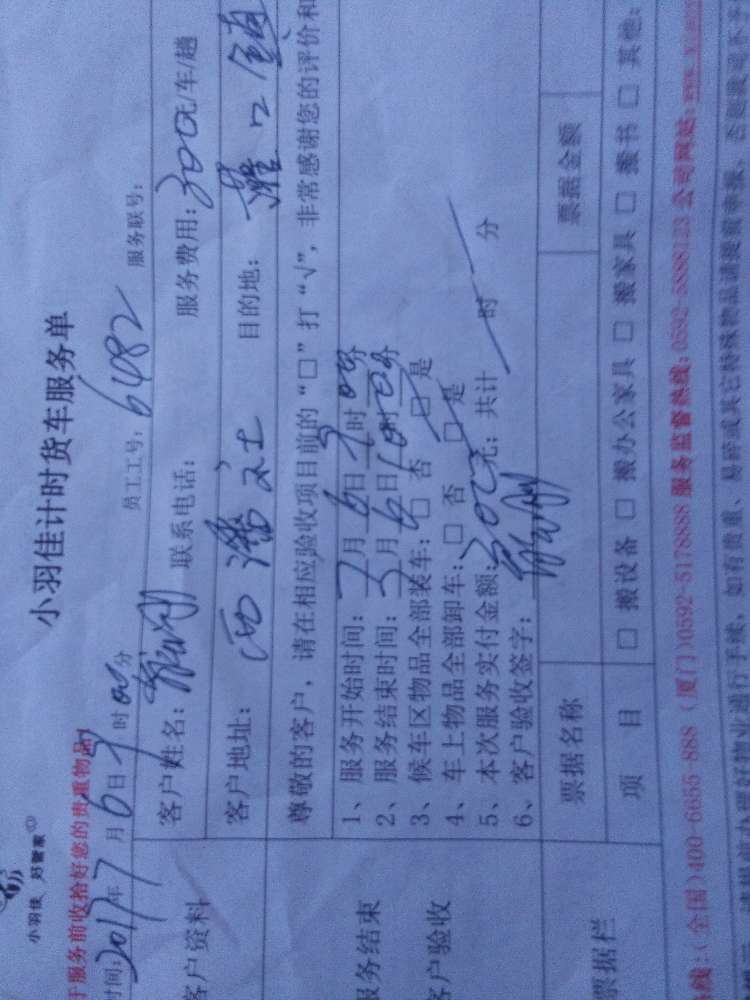 小羽佳 好管家
小羽佳计时货车服务单
于服务前收拾好您的贵重物品
时间: 2017年7月6日9时00分 员工工号: 6482 服务联号:
客户资料
客户姓名: 联系电话: 服务费用: 300元/车/趟
客户地址: 西潘社 目的地: 灌口镇
尊敬的客户，请在相应验收项目前的“□”打“√”，非常感谢您的评价和
服务结束
客户验收
1、服务开始时间: 7月6日9时00分
2、服务结束时间: 7月6日10时00分
3、候车区物品全部装车: □ 否 □ 是
4、车上物品全部卸车: □ 否 □ 是
5、本次服务实付金额: 300元; 共计 时 分
6、客户验收签字:
票据栏
票据名称 票据金额
项 目 □ 搬设备 □ 搬办公家具 □ 搬家具 □ 搬书 □ 其他:
线:(全国)400-6655-888 (厦门)0592-5178888 服务监督热线:0592-5888123 公司网站:
办理好物业通行手续，如有贵重、易碎或其它特殊物品请提前申报，否则